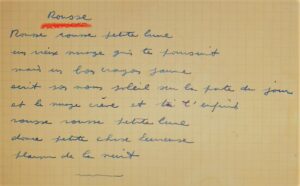 Rousse
Rousse rousse petite lune
un vieux nuage qui te poursuit
mais un bon crayon jaune
écrit son nom soleil sur la patte du jour
et le nuage crève et toi t'enfuit
rousse rousse petite lune
douce petite chose
de la nuit